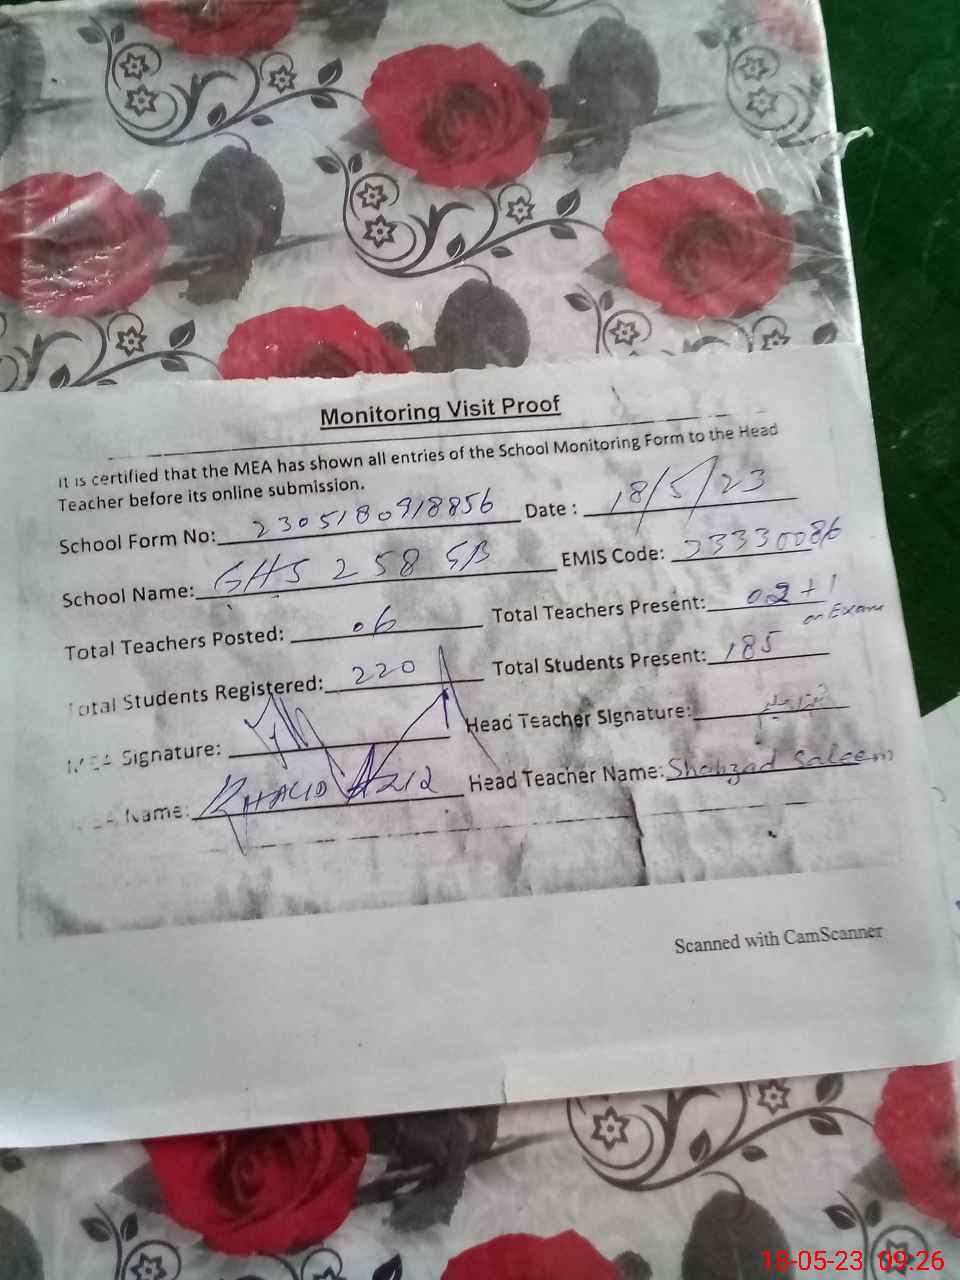 Monitoring Visit Proof
It is certified that the MEA has shown all entries of the School Monitoring Form to the Head
Teacher before its online submission.
School Form No: 2305180918856 Date : 18/5/23
School Name: GHS 258 EB EMIS Code: 23330086
Total Teachers Posted: 06 Total Teachers Present: 02 + 1
on Exam
Total Students Registered: 220 Total Students Present: 185
MEA Signature: Head Teacher Signature:
Name: KHALID AZIZ Head Teacher Name: Shahzad Saleem
Scanned with CamScanner
18-05-23 09:26